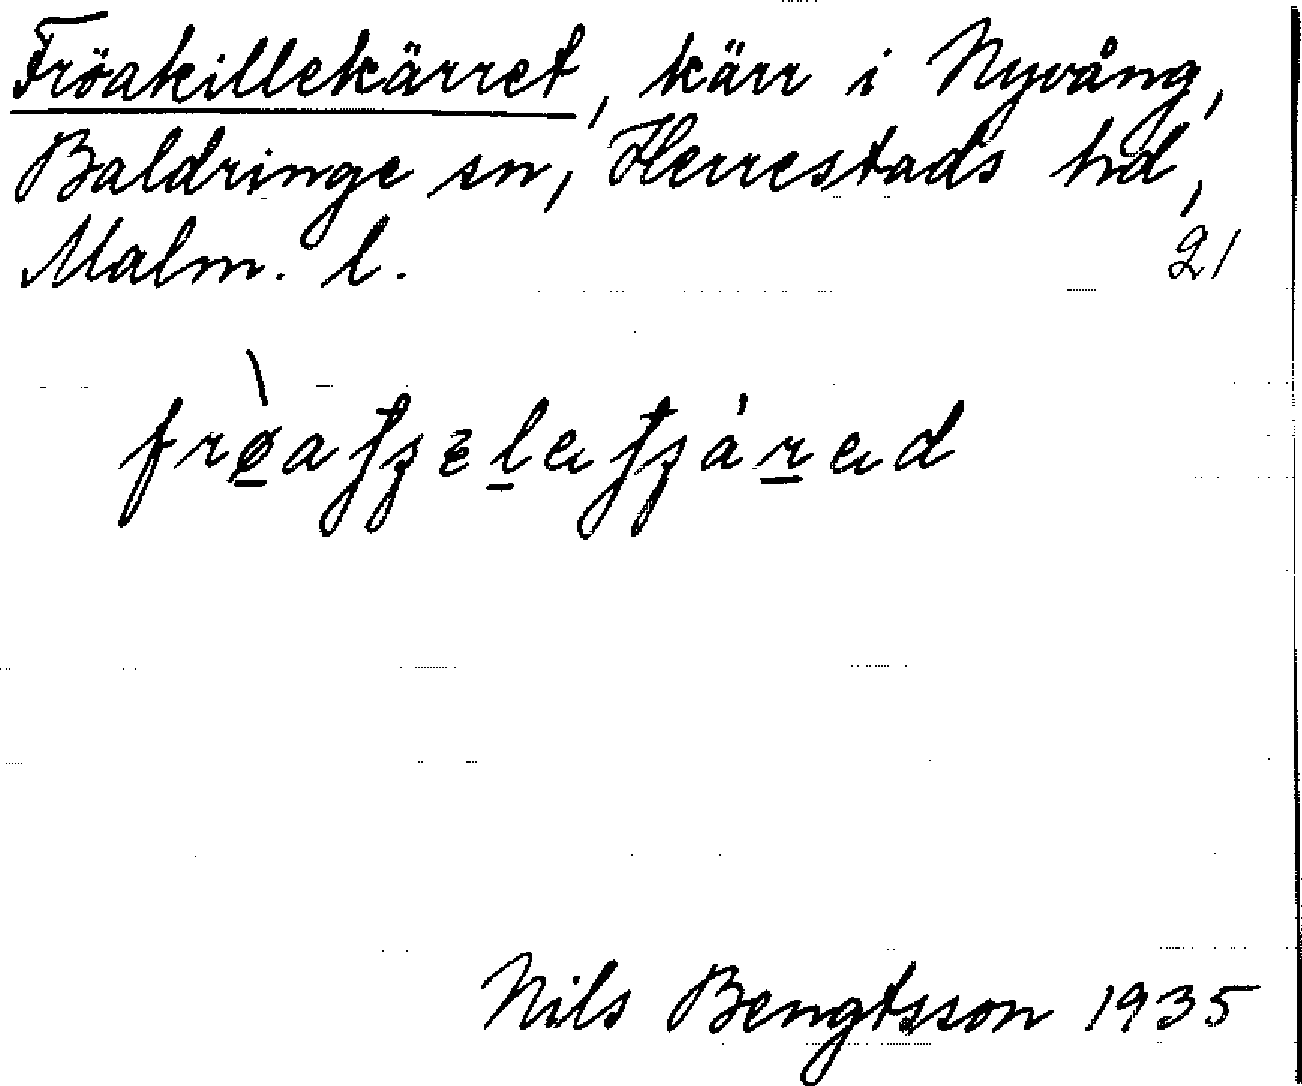 Fröakillekärret, kärr i Nyvång,
Baldringe sn, Herrestads hd,
Malm. l. 21
Nils Bengtsson 1935